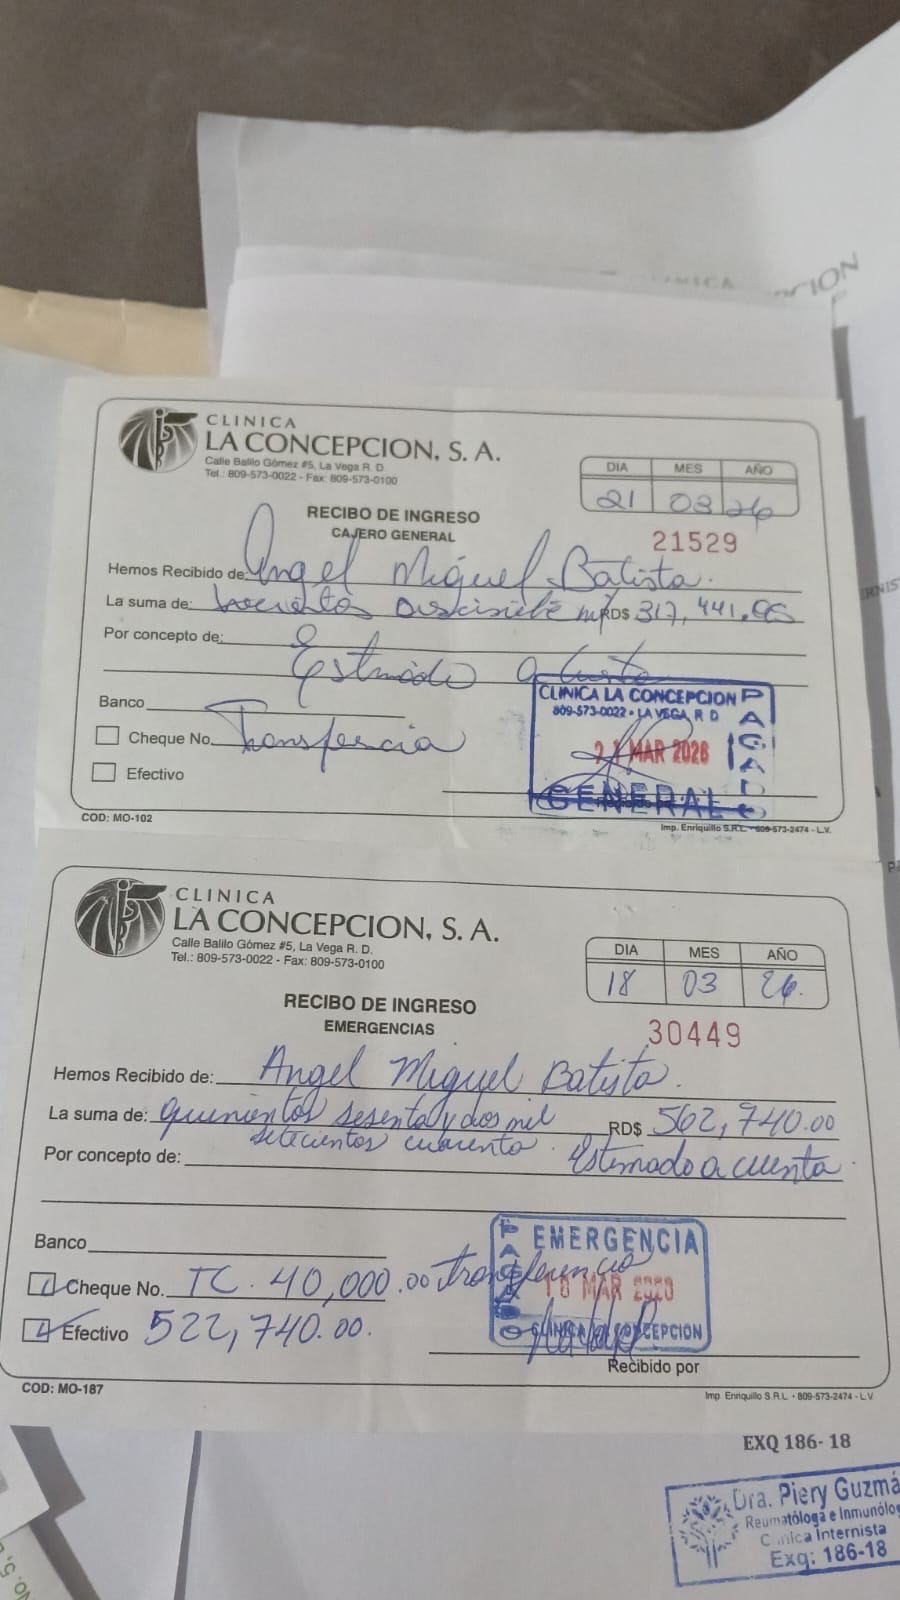 CION
CLINICA
LA CONCEPCION, S. A.
Calle Balilo Gómez #5, La Vega R. D.
Tel.: 809-573-0022 - Fax: 809-573-0100
DIA MES AÑO
21 03 26
RECIBO DE INGRESO
CAJERO GENERAL
21529
Hemos Recibido de: Angel Miguel Batista.
La suma de: RD$ 317,441.95
Por concepto de:
Estimado a Cuenta
Banco
Cheque No. Transferencia
Efectivo
CLINICA LA CONCEPCION
809-573-0022 - LA VEGA, R D
21 MAR 2026
PAGADO
GENERAL
COD: MO-102
Imp. Enriquillo S.R.L. - 809-573-2474 - L.V.
CLINICA
LA CONCEPCION, S. A.
Calle Balilo Gómez #5, La Vega R. D.
Tel.: 809-573-0022 - Fax: 809-573-0100
DIA MES AÑO
18 03 26.
RECIBO DE INGRESO
EMERGENCIAS
30449
Hemos Recibido de: Angel Miguel Batista.
La suma de: quinientos sesenta y dos mil RD$ 562,740.00
setecientos cuarenta.
Por concepto de: Estimado a cuenta.
Banco
Cheque No. TC. 40,000.00 Transferencia
Efectivo 522,740.00.
PAGADO
EMERGENCIA
MAR
CLINICA LA CONCEPCION
Recibido por
COD: MO-187
Imp. Enriquillo S.R.L. - 809-573-2474 - L.V.
EXQ 186- 18
Dra. Piery Guzmá
Reumatóloga e Inmunólo
Clínica Internista
Exq: 186-18
No.5,